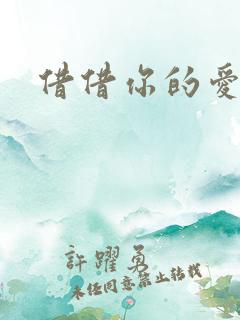 借借你的愛
許躍勇
未经同意禁止转载